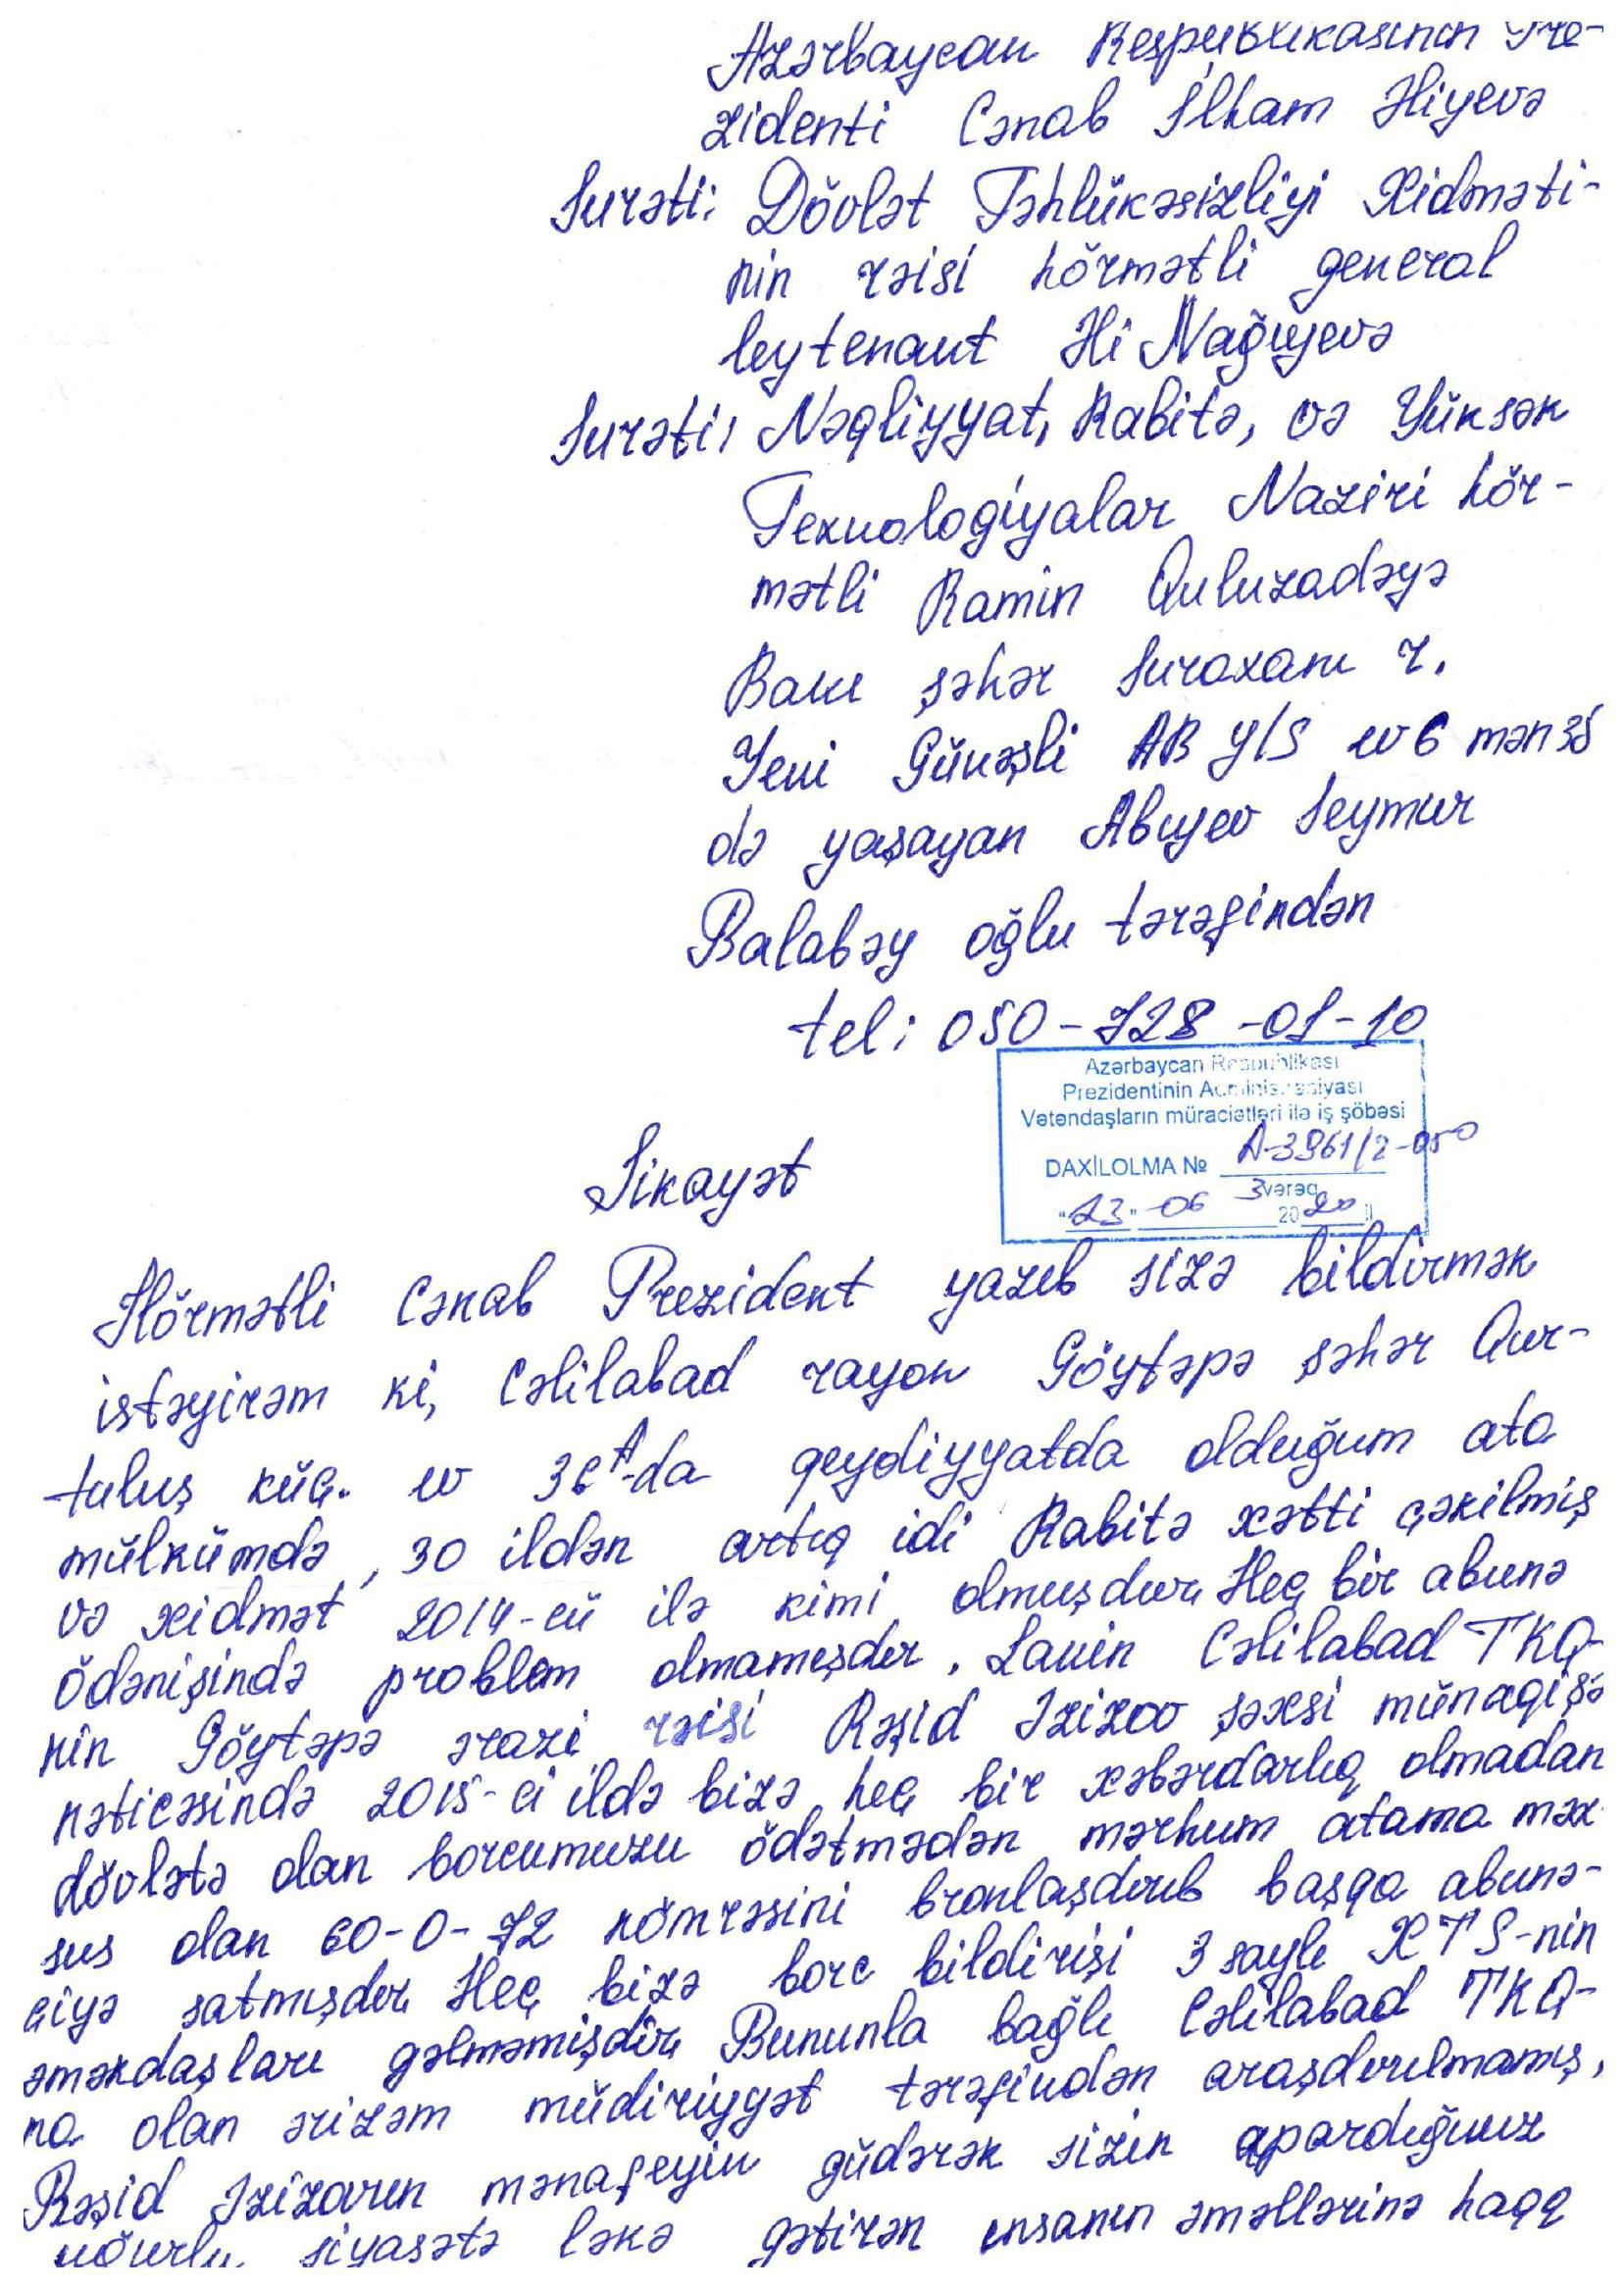 Azərbaycan Respublikasının Pre-
zidenti Cənab İlham Əliyevə
Surəti: Dövlət Təhlükəsizliyi Xidməti-
nin rəisi hörmətli general
leytenant Əli Nağıyevə
Surəti: Nəqliyyat, Rabitə, və Yüksək
Texnologiyalar Naziri hör-
mətli Ramin Quluzadəyə
Bakı şəhər Suraxanı r.
Yeni Günəşli AB Y/S ev 6 mən 38
də yaşayan Abıyev Seymur
Balabəy oğlu tərəfindən
tel: 050-728-01-10
Azərbaycan Respublikası
Prezidentinin Administrasiyası
Vətəndaşların müraciətləri ilə iş şöbəsi
DAXİLOLMA № A-3961/2-050
3 vərəq
"23" -06 2020 il
Şikayət
Hörmətli Cənab Prezident yazıb sizə bildirmək
istəyirəm ki, Cəlilabad rayon Göytəpə şəhər Qur-
tuluş küç. ev 36A-da qeydiyyatda olduğum ata
mülkümdə, 30 ildən artıq idi Rabitə xətti çəkilmiş
və xidmət 2014-cü ilə kimi olmuşdur. Heç bir abunə
ödənişində problem olmamışdır. Lakin Cəlilabad TKQ-
nin Göytəpə ərazi rəisi Rəşid Əzizov şəxsi münaqişə
nəticəsində 2015-ci ildə bizə heç bir xəbərdarlıq olmadan
dövlətə olan borcumuzu ödətmədən mərhum atama məx
sus olan 60-0-72 nömrəsini bronlaşdırıb başqa abunə-
çiyə satmışdır. Heç bizə borc bildirişi 3 saylı XTS-nin
əməkdaşları gəlməmişdir. Bununla bağlı Cəlilabad TKQ-
na olan ərizəm müdiriyyət tərəfindən araşdırılmamış,
Rəşid Əzizovın mənafeyin güdərək sizin apardığınız
uğurlu siyasətə ləkə gətirən insanın əməllərinə haqq